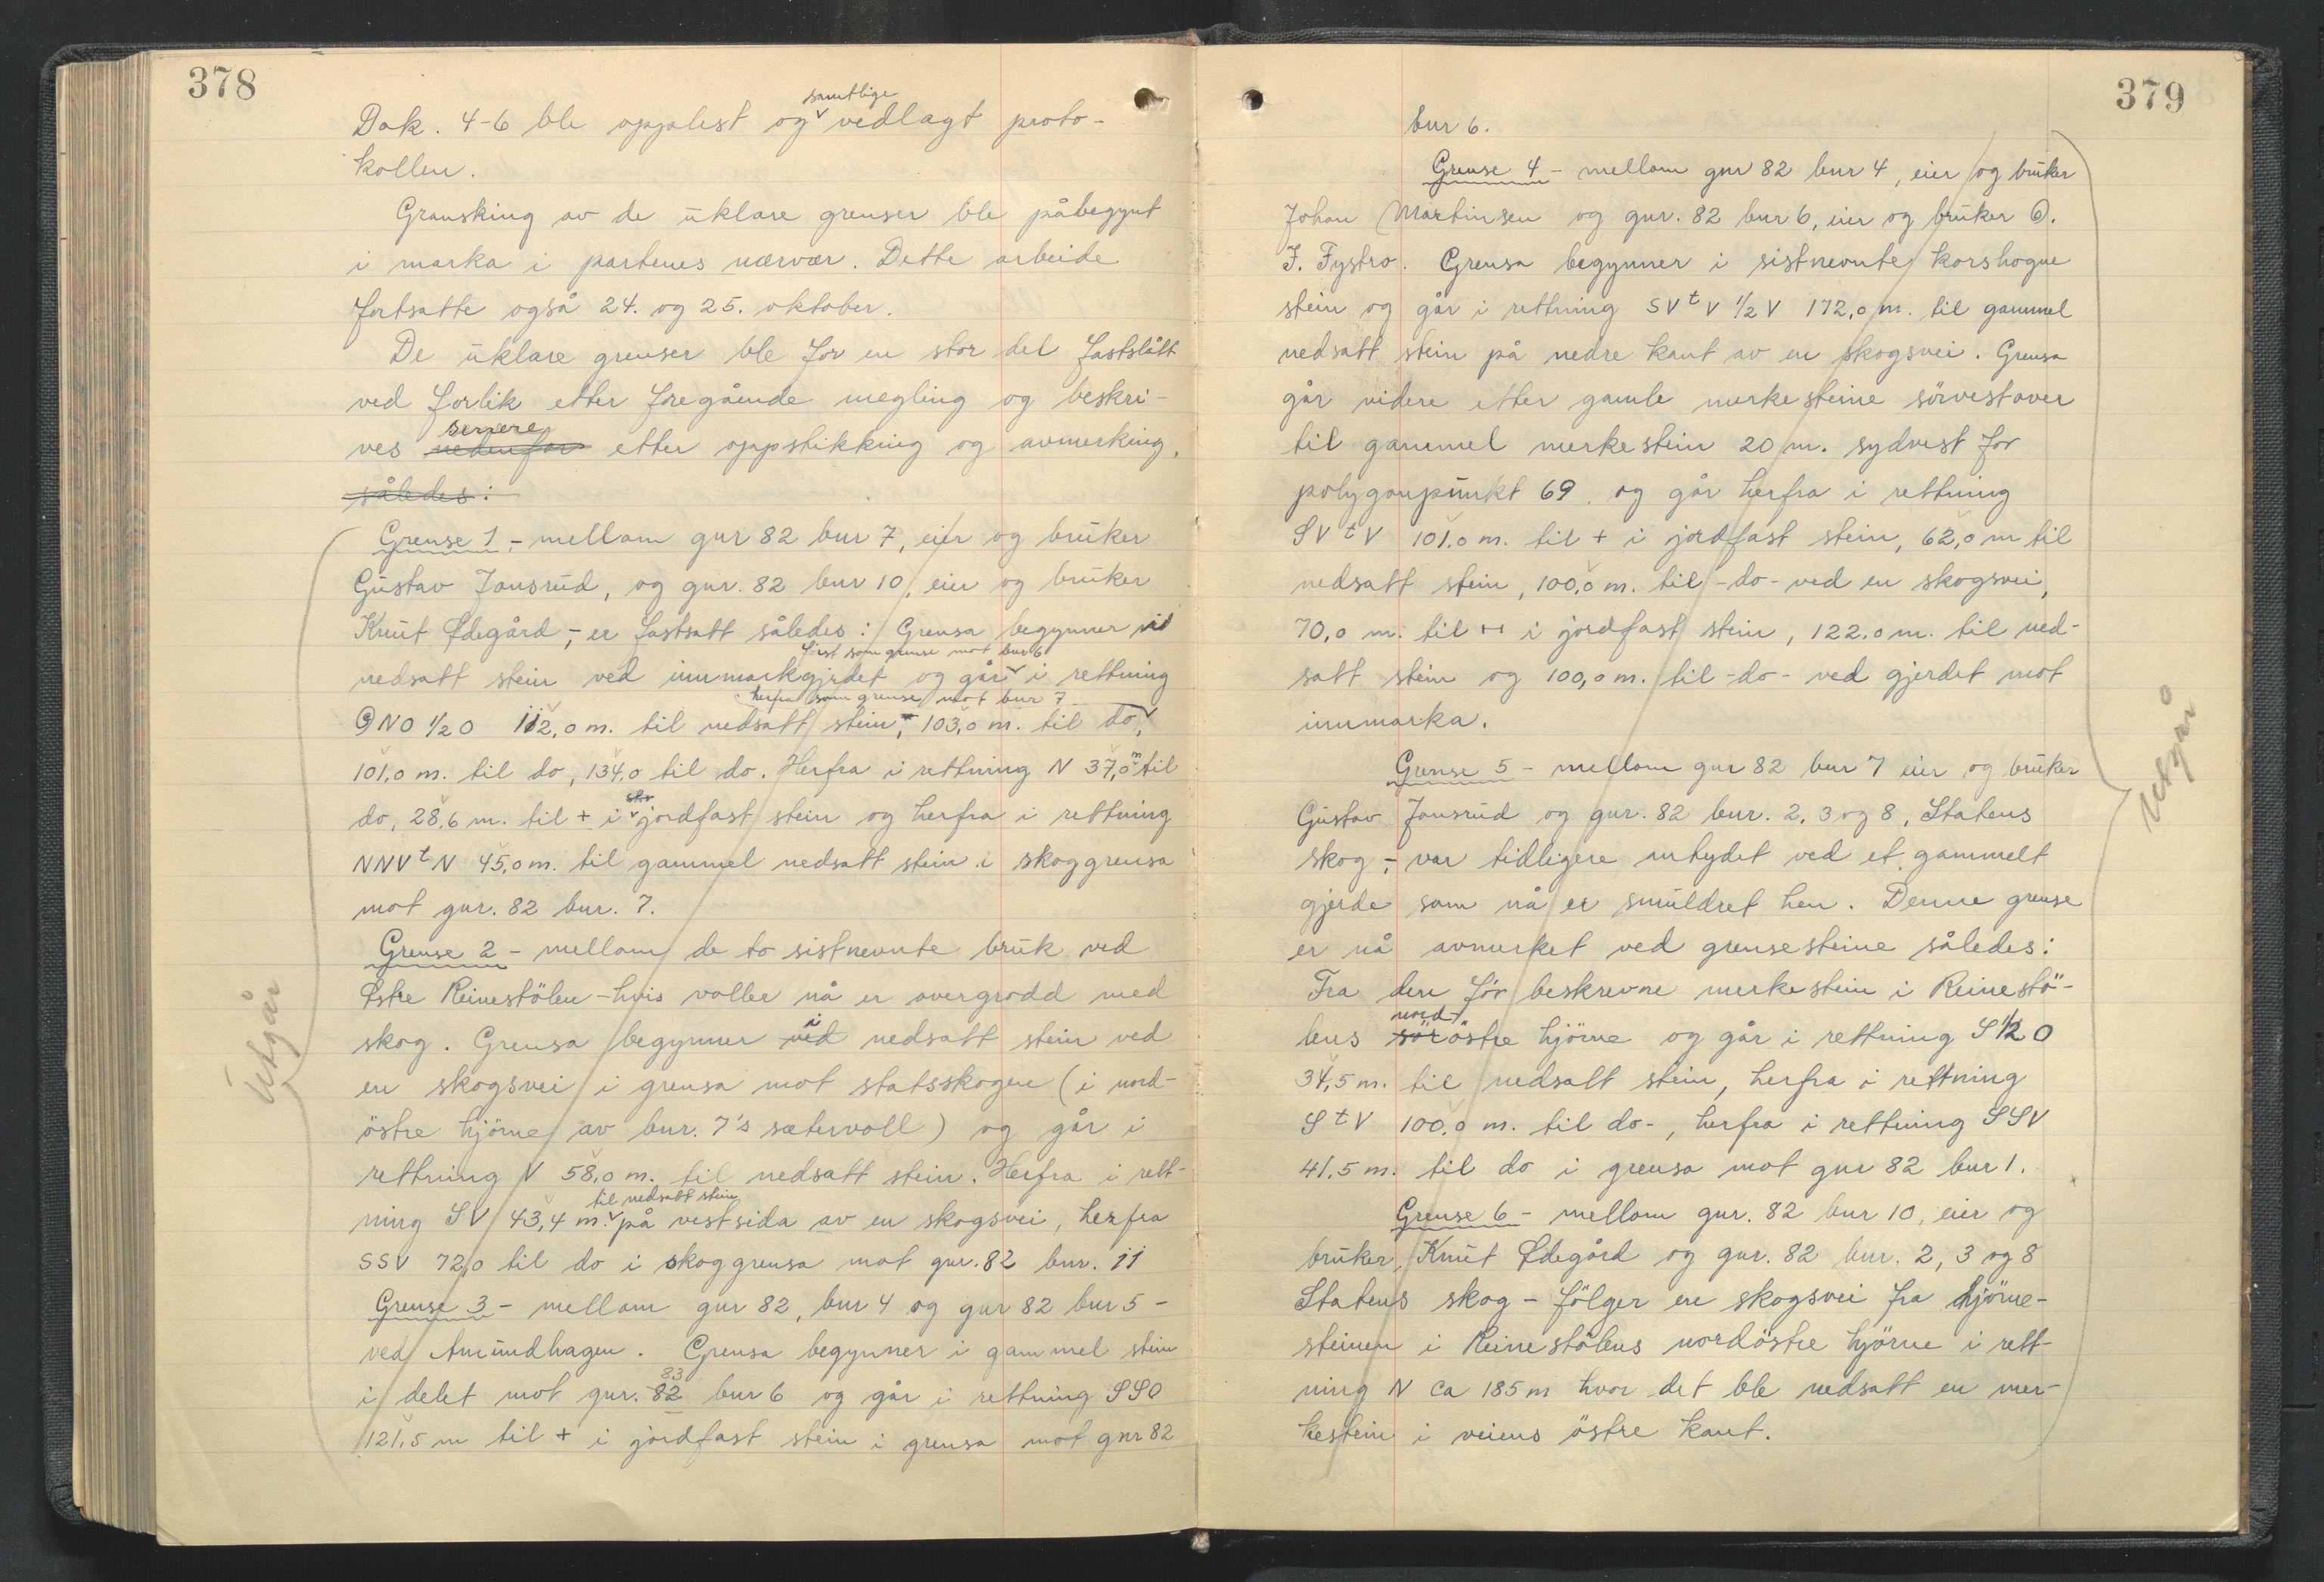 378
Dok. 4-6 ble opplest og samtlige vedlagt proto-
kollen.
Gransking av de uklare grenser ble påbegynt
i marka i partenes nærvær. Dette arbeide
fortsatte også 24. og 25. oktober.
De uklare grenser ble for en stor del fastslått
ved forlik etter foregående megling og beskri-
ves nedenfor senere etter oppstikking og avmerking,
således:
Grense 1 - mellom gnr 82 bnr 7, eier og bruker
Gustav Jonsrud, og gnr. 82 bnr 10, eier og bruker
Knut Ødegård, - er fastsatt således: Grensa begynner ved
nedsatt stein ved innmarkgjerdet og går først som grense mot bnr 6 i rettning
ONO 1/2 O 112,0 m. til nedsatt stein, 103,0 m. til do, herfra som grense mot bnr 7
101,0 m. til do, 134,0 til do. Herfra i rettning N 37,0 m til
do, 28,6 m. til + i jordfast stein og herfra i rettning
NNV t N 45,0 m. til gammel nedsatt stein i skoggrensa
mot gnr. 82 bnr. 7.
Grense 2 - mellom de to sistnevnte bruk ved
Østre Reinestölen - hvis voller nå er overgrodd med
skog. Grensa begynner ved i nedsatt stein ved
en skogsvei i grensa mot statsskogen (i nord-
östre hjörne av bnr. 7's sætervoll) og går i
rettning V 58,0 m. til nedsatt stein. Herfra i rett-
ning SV 43,4 m. til nedsatt stein på vestsida av en skogsvei, herfra
SSV 72,0 til do i skoggrensa mot gnr. 82 bnr. 11
Grense 3 - mellom gnr 82, bnr 4 og gnr 82 bnr 5 -
ved Amundhagen. Grensa begynner i gammel stein
i delet mot gnr. 82 83 bnr 6 og går i rettning SSO
121,5 m til + i jordfast stein i grensa mot gnr 82
Utgår
379
bnr 6.
Grense 4 - mellom gnr 82 bnr 4, eier og bruker
Johan Martinsen og gnr. 82 bnr 6, eier og bruker O.
J. Fystro. Grensa begynner i sistnevnte korshogne
stein og går i rettning SV t V 1/2 V 172,0 m. til gammel
nedsatt stein på nedre kant av en skogsvei. Grensa
går videre etter gamle merkesteine sörvestover
til gammel merkestein 20 m. sydvest for
polygonpunkt 69. og går herfra i rettning
SV t V 101,0 m. til + i jordfast stein, 62,0 m til
nedsatt stein, 100,0 m. til -do- ved en skogsvei,
70,0 m. til ++ i jordfast stein, 122,0 m. til ned-
satt stein og 100,0 m. til -do- ved gjerdet mot
innmarka.
Grense 5 - mellom gnr 82 bnr 7 eier og bruker
Gustav Jonsrud og gnr. 82 bnr. 2, 3 og 8, Statens
skog, - var tidligere antydet ved et gammelt
gjerde som nå er smuldret hen. Denne grense
er nå avmerket ved grensesteine således:
Fra den för beskrevne merkestein i Reinestö-
lens sör nord östre hjörne og går i rettning S 1/2 O
34,5 m. til nedsatt stein, herfra i rettning
S t V 100,0 m. til do-, herfra i rettning SSV
41,5 m. til do i grensa mot gnr 82 bnr 1.
Grense 6 - mellom gnr. 82 bnr 10, eier og
bruker, Knut Ødegård og gnr. 82 bnr. 2, 3 og 8
Statens skog - fölger en skogsvei fra hjörne-
steinen i Reinestölens nordöstre hjörne i rett-
ning N ca 185 m hvor det ble nedsatt en mer-
kestein i veiens östre kant.
Utgår